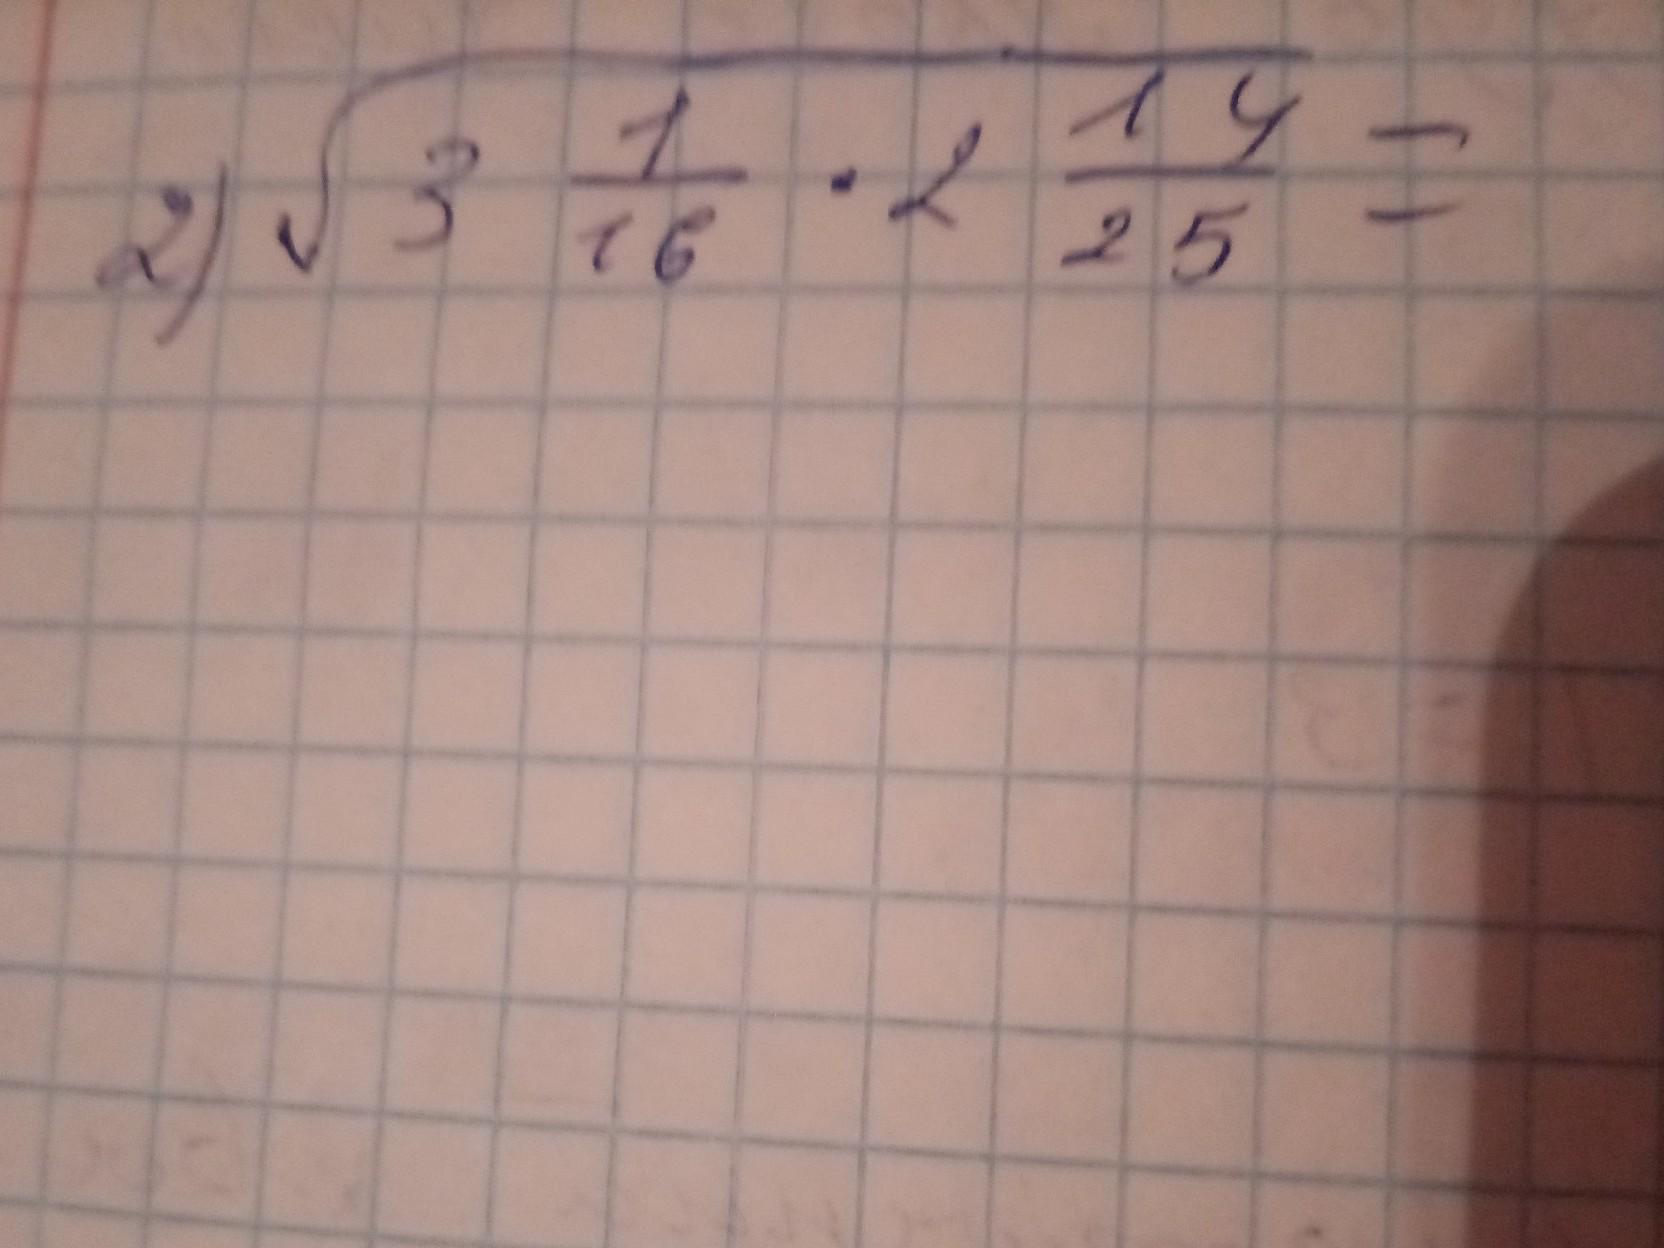 2) √(3 1/16 · 2 14/25) =